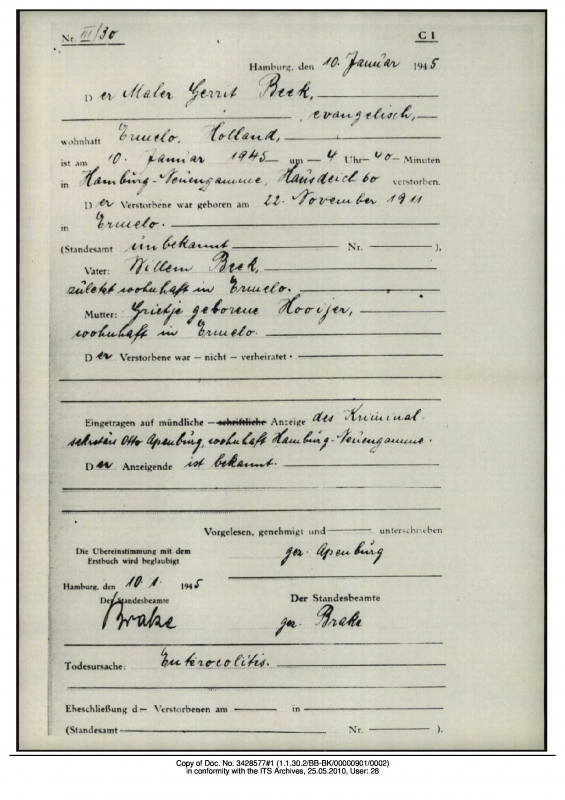 Nr. III/30
C 1
Hamburg, den 10. Januar 1945
Der Maler Gerrit Beek,
evangelisch,
wohnhaft Ermelo, Holland,
ist am 10. Januar 1945 um 4 Uhr 40 Minuten
in Hamburg-Neuengamme, Hausdeich 60 verstorben.
Der Verstorbene war geboren am 22. November 1911
in Ermelo.
(Standesamt unbekannt Nr. ).
Vater: Willem Beek,
zuletzt wohnhaft in Ermelo.
Mutter: Grietje geborene Hooijer,
wohnhaft in Ermelo.
Der Verstorbene war – nicht – verheiratet.
Eingetragen auf mündliche – schriftliche Anzeige des Kriminal-
sekretärs Otto Apenburg, wohnhaft Hamburg-Neuengamme.
Der Anzeigende ist bekannt.
Vorgelesen, genehmigt und unterschrieben
gez. Apenburg
Die Übereinstimmung mit dem
Erstbuch wird beglaubigt
Hamburg, den 10.1. 1945
Der Standesbeamte
Brake
Der Standesbeamte
gez. Brake
Todesursache: Enterocolitis.
Eheschließung d– Verstorbenen am in
(Standesamt Nr. ).
Copy of Doc. No. 3428577#1 (1.1.30.2/BB-BK/00000901/0002)
in conformity with the ITS Archives, 25.05.2010, User: 28